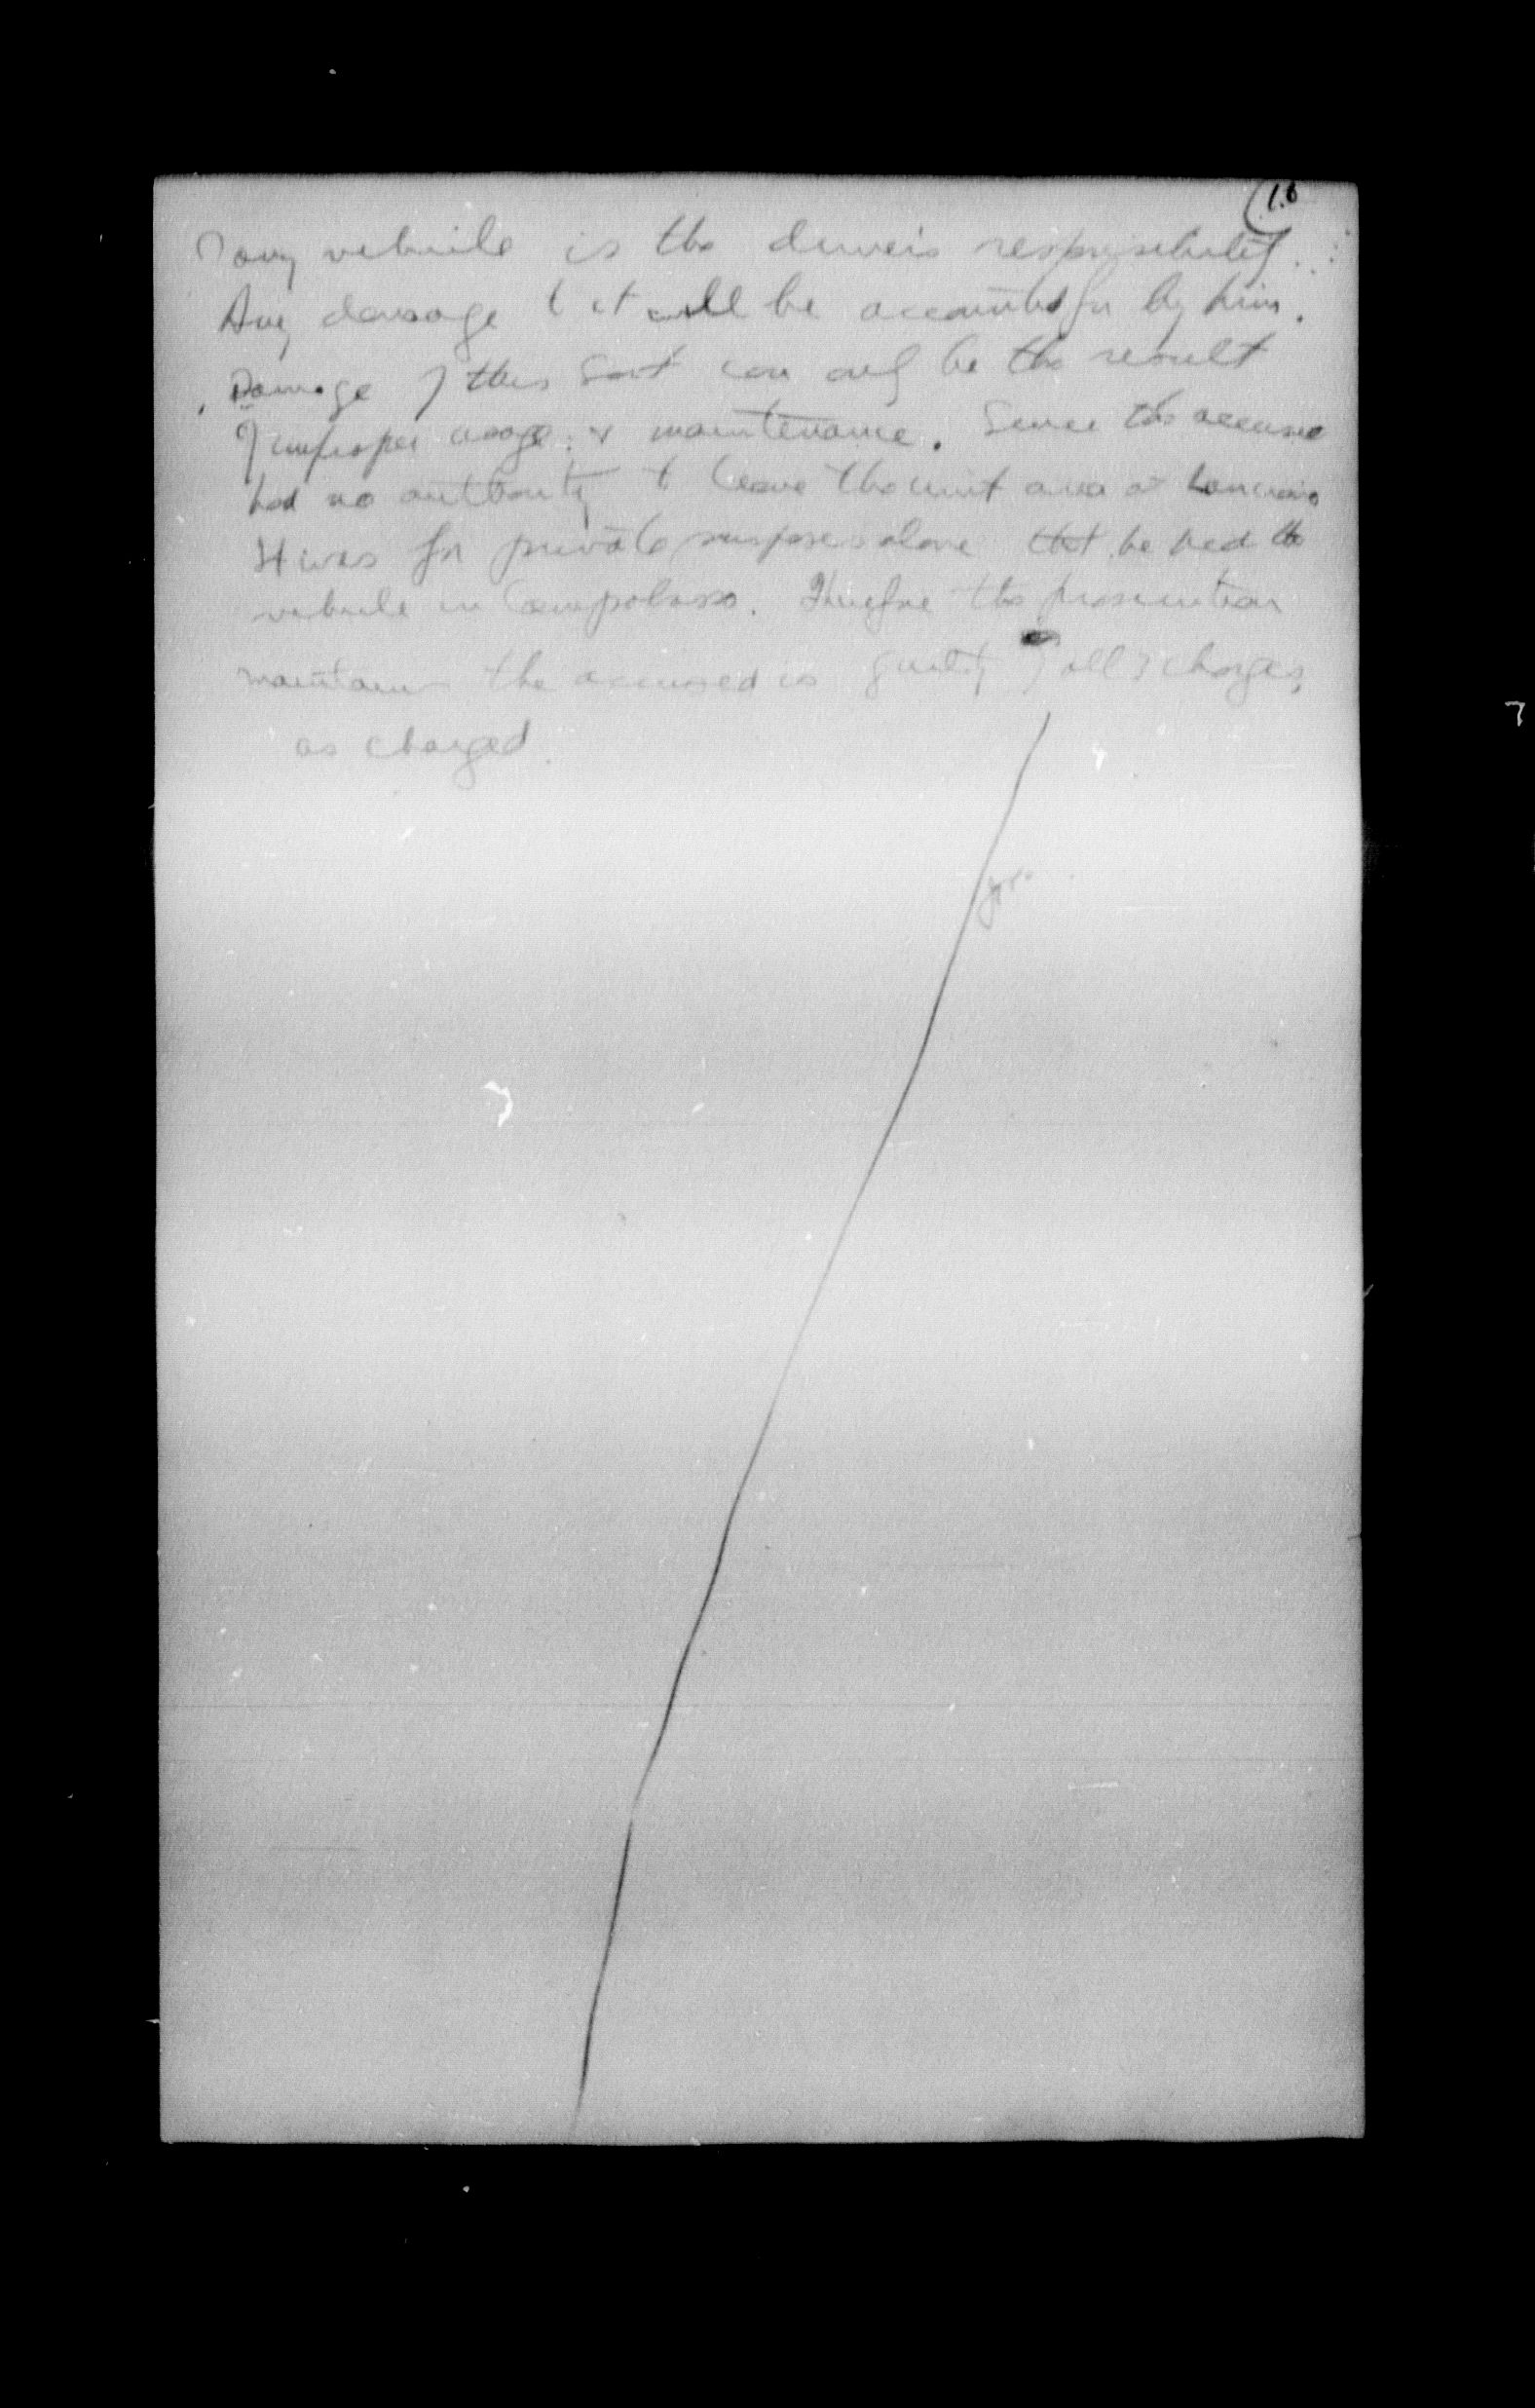 16
of any vehicle is the driver's responsibility.
Any damage to it will be accounted for by him.
Damage of this sort can only be the result
of improper usage & maintenance. Since the accused
had no authority to leave the unit area at Lanciano
It was for private purposes alone that he had the
vehicle in Campobasso. Therefore the prosecution
maintains the accused is guilty of all 3 charges,
as charged.